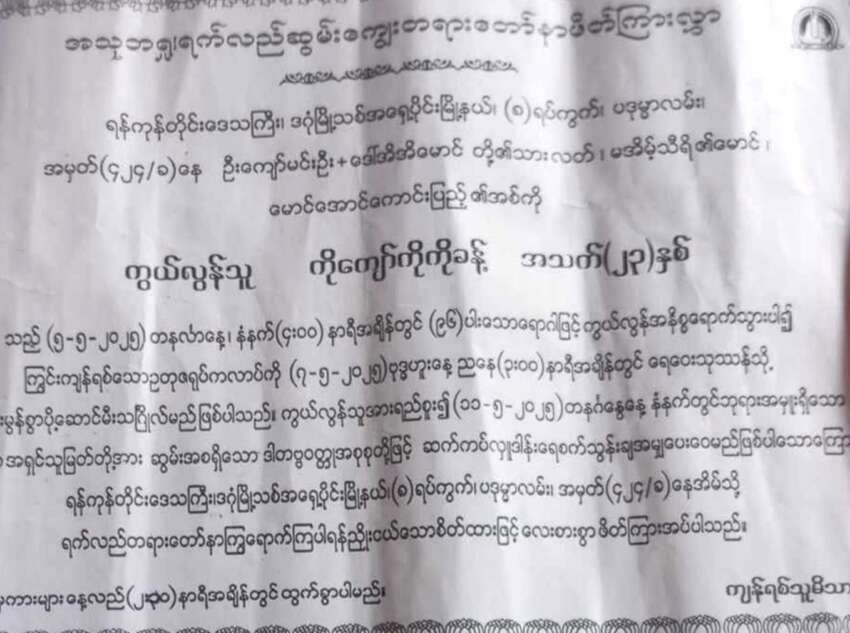 အသုဘရှု၊ရက်လည်ဆွမ်းကျွေးတရားတော်နာဖိတ်ကြားလွှာ
ရန်ကုန်တိုင်းဒေသကြီး၊ ဒဂုံမြို့သစ်အရှေ့ပိုင်းမြို့နယ်၊ (၈)ရပ်ကွက်၊ ပဒုမ္မာလမ်း၊
အမှတ်(၄၂၄/ခ)နေ ဦးကျော်မင်းဦး+ဒေါ်အိအိမောင် တို့၏သားလတ်၊ မအိမ့်သီရိ၏မောင်၊
မောင်အောင်ကောင်းပြည့်၏အစ်ကို
ကွယ်လွန်သူ ကိုကျော်ကိုကိုခန့် အသက်(၂၃)နှစ်
သည် (၅-၅-၂၀၂၅) တနင်္လာနေ့၊ နံနက်(၄း၀၀) နာရီအချိန်တွင် (၉၆)ပါးသောရောဂါဖြင့် ကွယ်လွန်အနိစ္စရောက်သွားပါ၍
ကြွင်းကျန်ရစ်သောဥတုဇရုပ်ကလာပ်ကို (၇-၅-၂၀၂၅)ဗုဒ္ဓဟူးနေ့ ညနေ(၃း၀၀)နာရီအချိန်တွင် ရေဝေးသုဿာန်သို့
မွန်စွာပို့ဆောင်မီးသဂြိုလ်မည်ဖြစ်ပါသည်။ ကွယ်လွန်သူအားရည်စူး၍ (၁၁-၅-၂၀၂၅)တနင်္ဂနွေနေ့ နံနက်တွင်ဘုရားအမှူးရှိသော
အရှင်သူမြတ်တို့အား ဆွမ်းအစရှိသော ဒါတဗ္ဗဝတ္ထုအစုစုတို့ဖြင့် ဆက်ကပ်လှူဒါန်းရေစက်သွန်းချအမျှပေးဝေမည်ဖြစ်ပါသောကြော
ရန်ကုန်တိုင်းဒေသကြီး၊ဒဂုံမြို့သစ်အရှေ့ပိုင်းမြို့နယ်၊(၈)ရပ်ကွက်၊ပဒုမ္မာလမ်း၊ အမှတ်(၄၂၄/ခ)နေအိမ်သို့
ရက်လည်တရားတော်နာကြွရောက်ကြပါရန်ညှိုးငယ်သောစိတ်ထားဖြင့် လေးစားစွာ ဖိတ်ကြားအပ်ပါသည်။
ကားများ နေ့လည်(၂း၀၀)နာရီအချိန်တွင် ထွက်ခွာပါမည်။ ကျန်ရစ်သူမိသာ